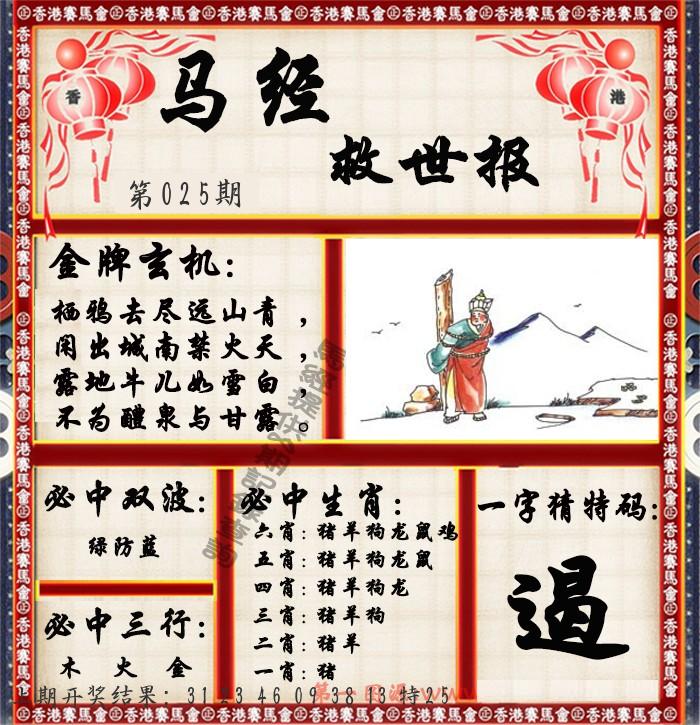 香港賽馬會
香
港
马经
救世报
第025期
金牌玄机：
栖鸦去尽远山青，
闲出城南禁火天，
露地牛儿如雪白，
不为醴泉与甘露。
必中双波：
绿防蓝
必中三行：
木 火 金
必中生肖：
六肖：猪羊狗龙鼠鸡
五肖：猪羊狗龙鼠
四肖：猪羊狗龙
三肖：猪羊狗
二肖：猪羊
一肖：猪
一字猜特码：
遏
期开奖结果：31 3 46 09 38 3特25